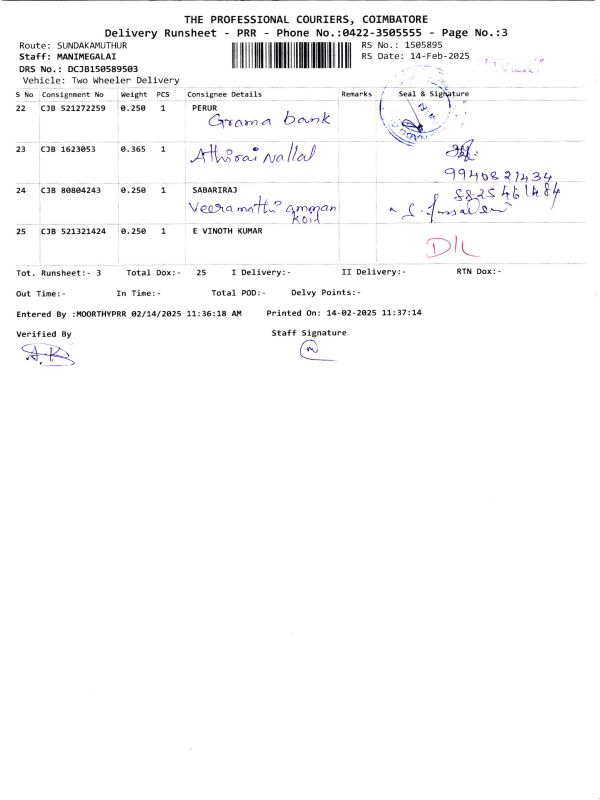 THE PROFESSIONAL COURIERS, COIMBATORE
Delivery Runsheet - PRR - Phone No.:0422-3505555 - Page No.:3
Route: SUNDAKAMUTHUR RS No.: 1505895
Staff: MANIMEGALAI RS Date: 14-Feb-2025
DRS No.: DCJB150589503
Vehicle: Two Wheeler Delivery
S No Consignment No Weight PCS Consignee Details Remarks Seal & Signature
22 CJB 521272259 0.250 1 PERUR
Grama bank
23 CJB 1623053 0.365 1
Athirai Nallal
9940821434
24 CJB 80804243 0.250 1 SABARIRAJ 8825461484
Veeramathi amman
Koil
25 CJB 521321424 0.250 1 E VINOTH KUMAR
D/L
Tot. Runsheet:- 3 Total Dox:- 25 I Delivery:- II Delivery:- RTN Dox:-
Out Time:- In Time:- Total POD:- Delvy Points:-
Entered By :MOORTHYPRR 02/14/2025 11:36:18 AM Printed On: 14-02-2025 11:37:14
Verified By Staff Signature
A.K